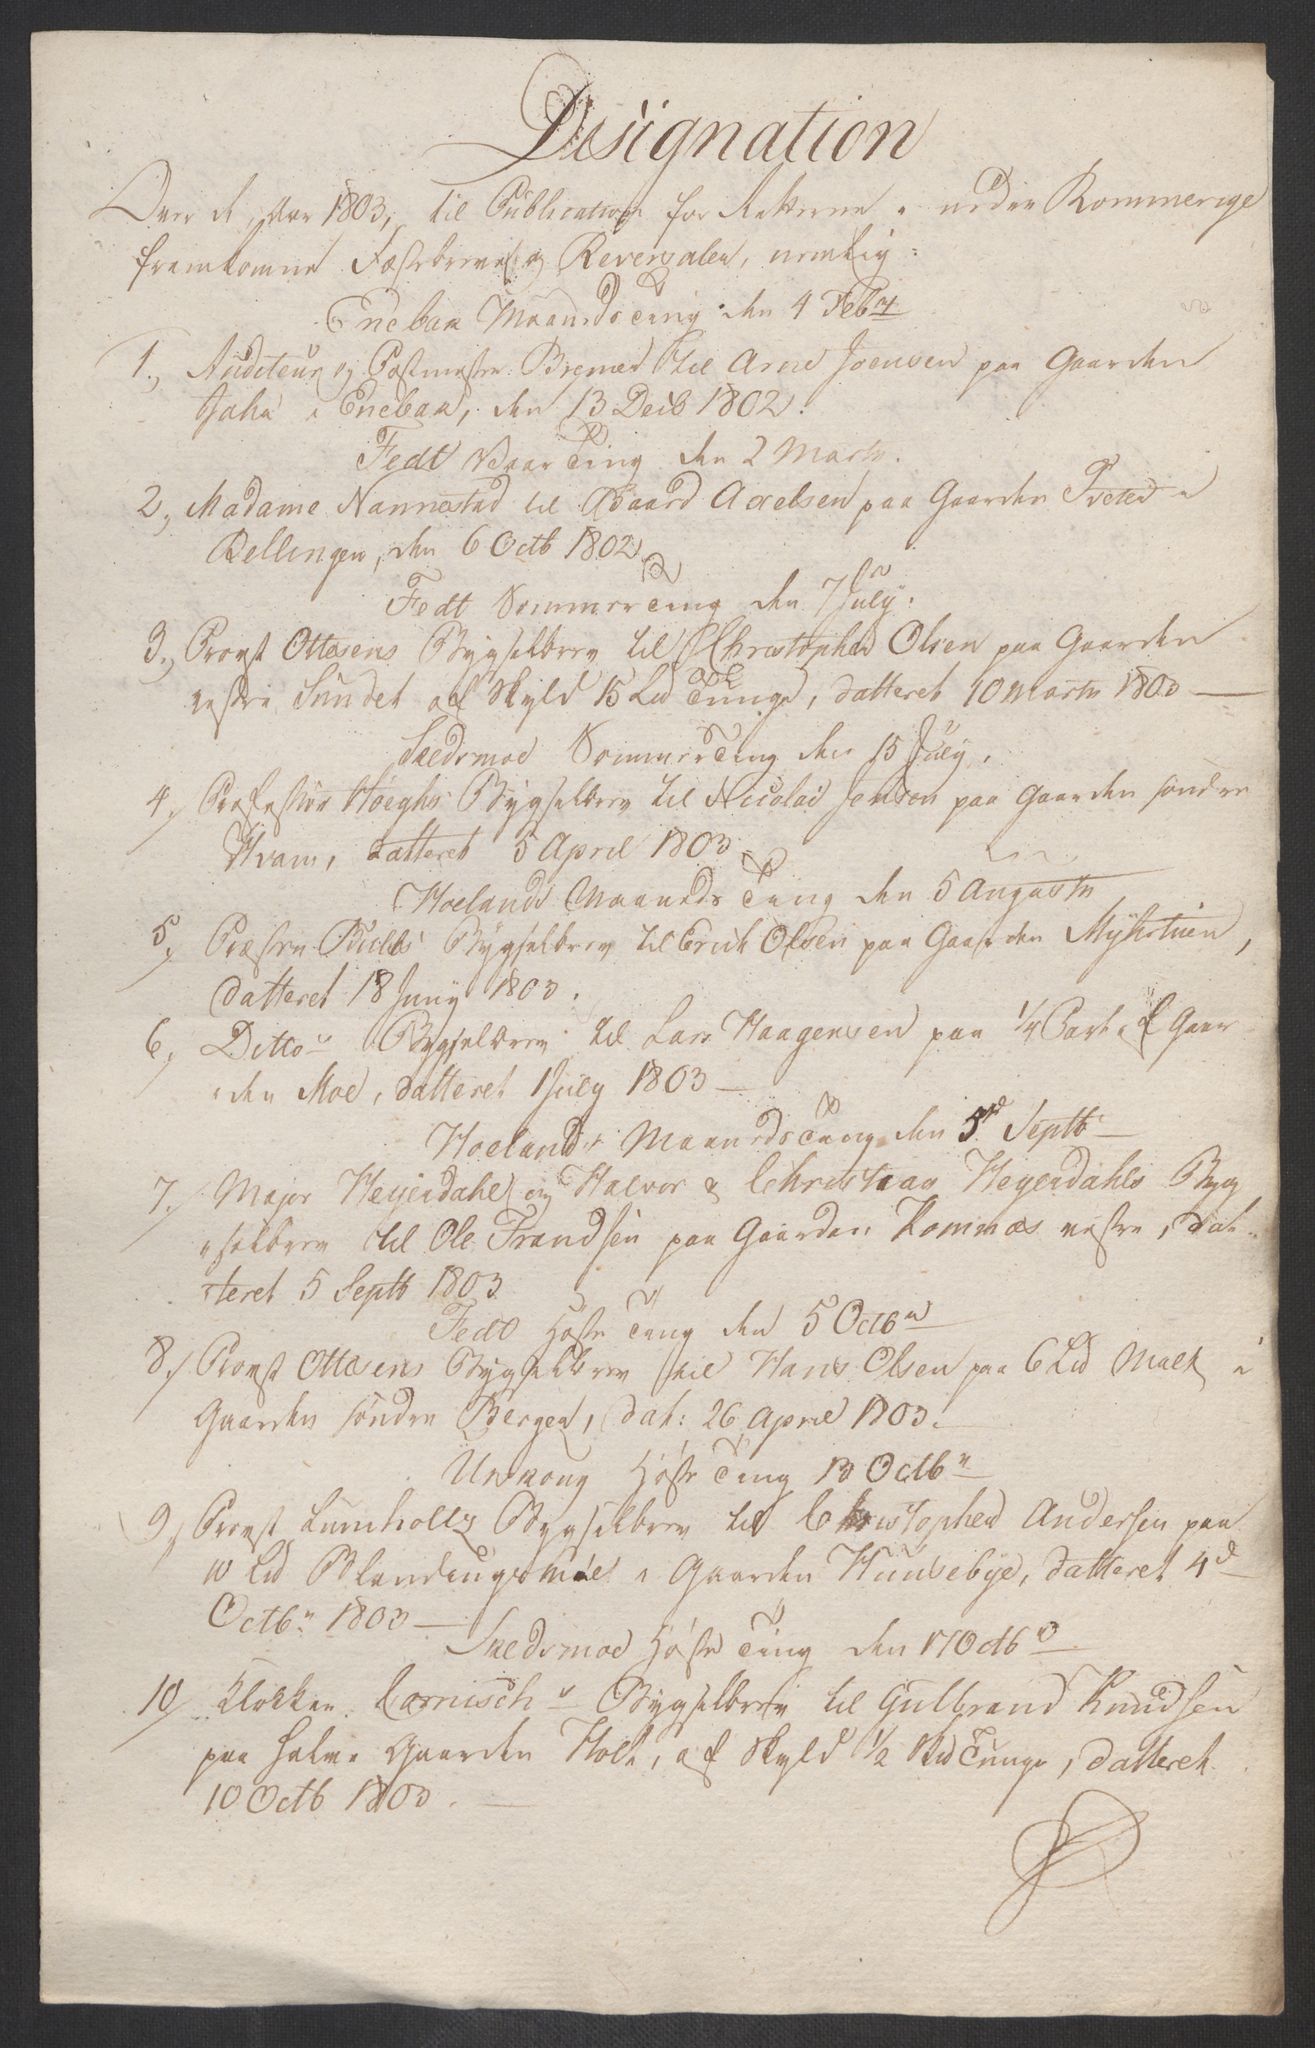 Designation
Over de, Aar 1803, til Publication for Retterne i nedre Rommerige
fremkomne Fæstebreve og Reversaler, nemlig:
Enebak Maaneds Ting den 4 Febr
1., Auditeur og Postmester Bremer til Arne Joensen paa Gaarden
i Enebak, den 13 Decb 1802.
Fedt Vaar Ting den 2 Marts.
2, Madame Nannestad til Baard Axelsen paa Gaarden Tveted i
Rellingen, den 6 Octb 1802
Fedt Sommer Ting den 7 July.
3., Provst Ottesens Bygselbrev til Christopher Olsen paa Gaarden
vestre Sundet af Skyld 15 Lid Tunge, datteret 10 Marts 1803
Skedsmoe Sommer Ting den 15 July.
4, Professor Høeghs Bygselbrev til Nicolai Jensen paa Gaarden søndre
Hvam, datteret 5 April 1803
Hoelands Maaneds Ting den 5 Augusti
5, Præsten Bulls Bygselbrev til Erich Olsen paa Gaarden Myhrtuen,
datteret 18 Juny 1803.
6, Ditto Bygselbrev til Lars Haagensen paa 1/4 Part af Gaar
den Moe, datteret 1 July 1803
Hoelands Maaneds Ting den 5 Septb
7., Major Heyerdahl og Halvor & Heyerdahls Byg
selbrev til Ole Frandsen paa Gaarden Kommæs vestre, dat
teret 5 Septb 1803
Fedt Høste Ting den 5 Octb
8., Provst Ottesens Bygselbrev til Hans Olsen paa 6 Lid Malt i
Gaarden søndre Berger, dat: 26 April 1803.
Urskoug Høste Ting 13 Octb
9, Provst Lumholtz Bygselbrev til Christopher Andersen paa
10 Lid Blandingsmæl i Gaarden Huusebye, datteret 4d
Octbr 1803
Skedsmoe Høste Ting den 17 Octb
10, Klokker Bygselbrev til Gulbrand Knudsen
paa halve Gaarden Holt, af Skyld 1/2 Skd Tunge, datteret
10 Octb 1803.